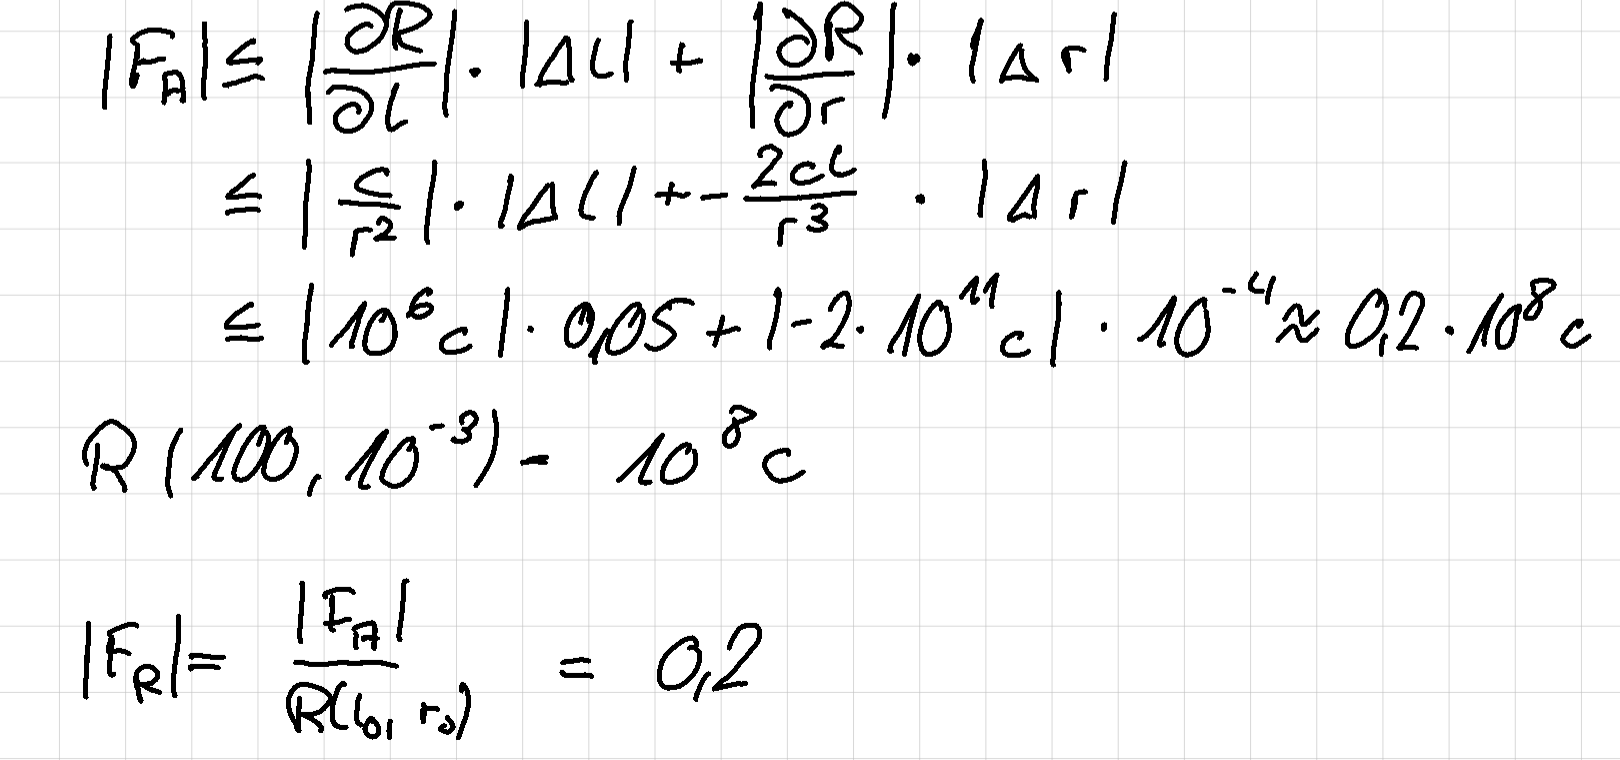 |F_A| ≤ |∂R/∂l| · |Δl| + |∂R/∂r| · |Δr|
≤ |c/r²| · |Δl| + - 2cl/r³ · |Δr|
≤ |10⁶c| · 0,05 + |-2 · 10¹¹c| · 10⁻⁴ ≈ 0,2 · 10⁸c
R(100, 10⁻³) - 10⁸c
|F_R| = |F_A| / R(l₀, r₀) = 0,2